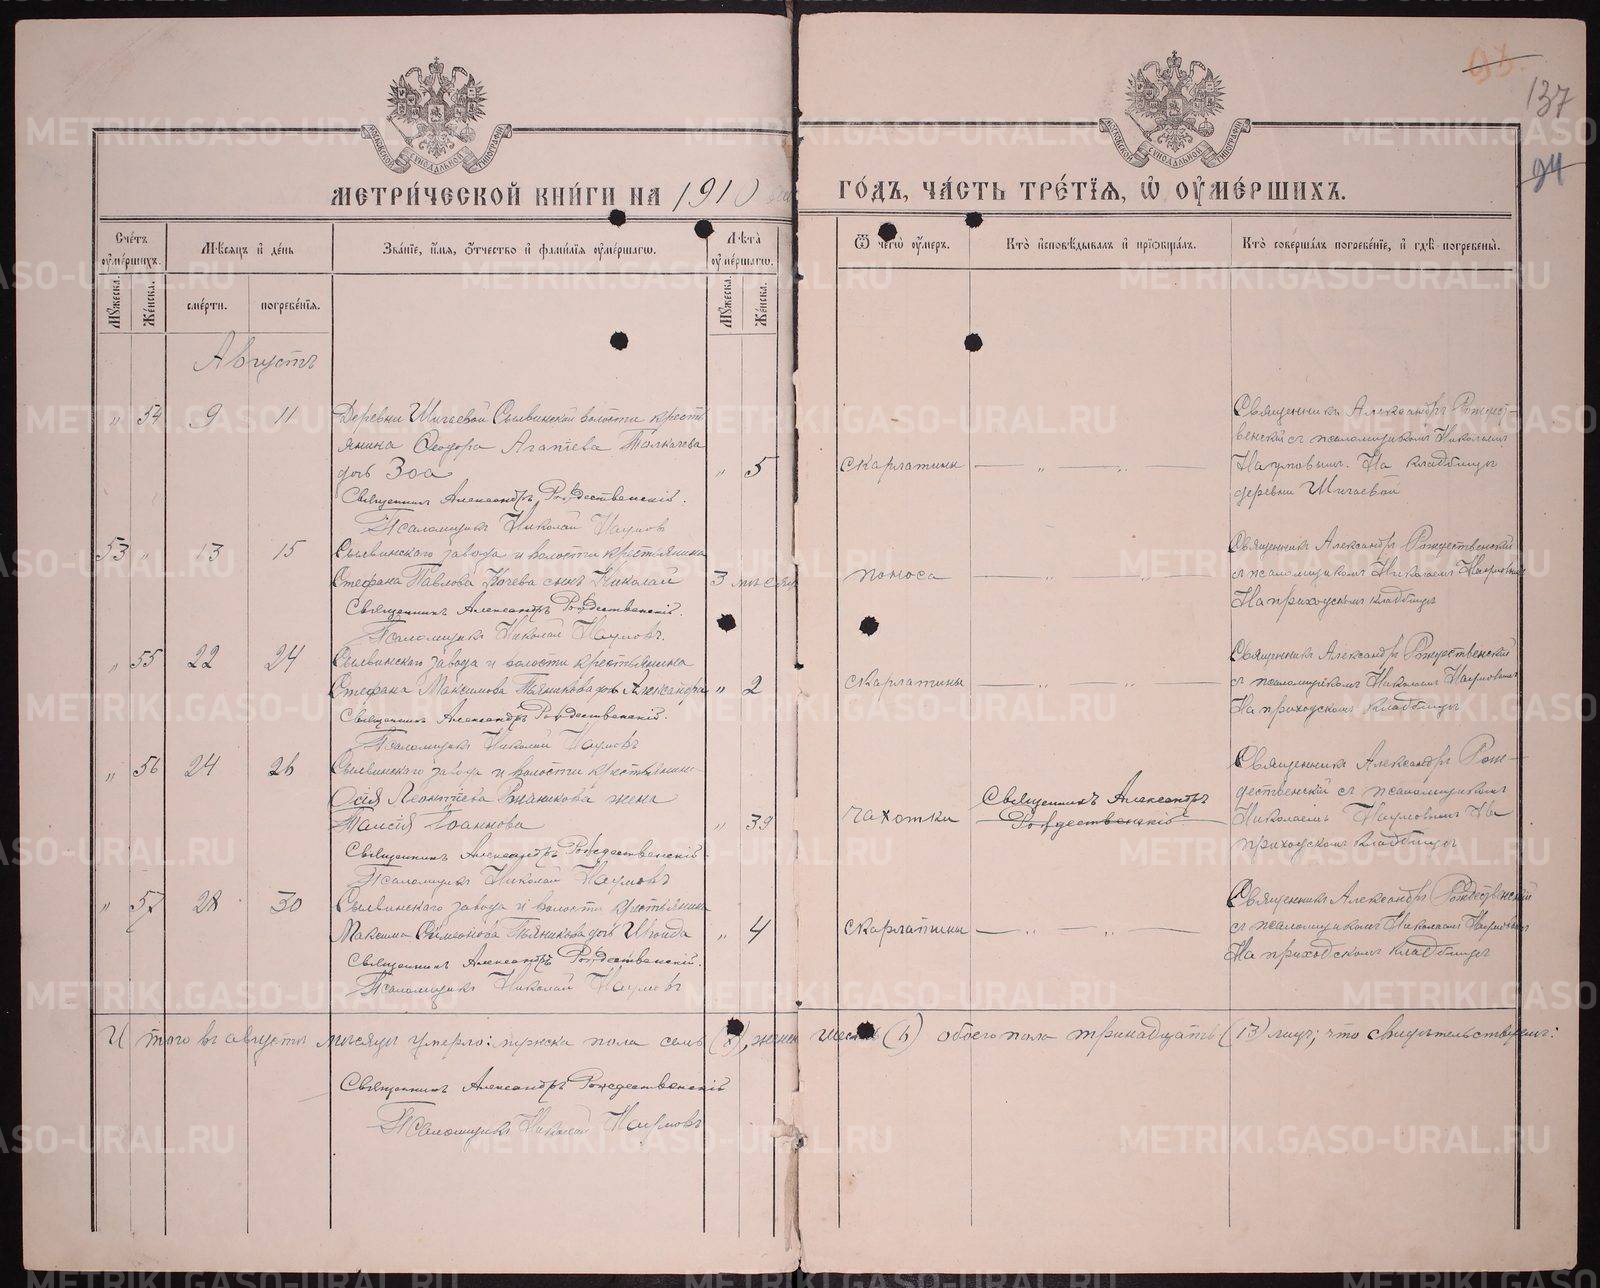 137
94
МЕТРИЧЕСКОЙ КНИГИ НА 1910
ГОДЪ, ЧАСТЬ ТРЕТІЯ, Ѡ ОУМЕРШИХЪ.
Счетъ оумершихъ.
Мѣсяцъ и день
Званіе, имя, отчество и фамилія оумершагѡ.
Лѣта оумершагѡ.
Ѿ чегѡ оумеръ.
Кто исповѣдывалъ и пріобщалъ.
Кто совершалъ погребеніе, и гдѣ погребены.
Мужеска.
Женска.
смерти.
погребенія.
Мужеска.
Женска.
Августъ
" 54 9 11
Деревни Шигаевой Сылвинской волости кресть
янина Ѳеодора Агапіева Толкачева
дочь Зоа
" 5
скарлатины
Священникъ Александръ Рождест-
венскій съ псаломщикомъ Николаемъ
Наумовымъ. На кладбищѣ
деревни Шигаевой
Священникъ Александръ Рождественскій.
Псаломщикъ Николай Наумовъ
53 " 13 15
Сылвинскаго завода и волости крестьянина
Стефана Павлова сынъ Николай
3 мѣсяц
поноса
Священникъ Александръ Рождественскій
съ псаломщикомъ Николаемъ Наумовымъ
На приходскомъ кладбищѣ
Священникъ Александръ Рождественскій.
Псаломщикъ Николай Наумовъ.
" 55 22 24
Сылвинскаго завода и волости крестьянина
Стефана Максимова Пьянкова дочь Александра
" 2
скарлатины
Священникъ Александръ Рождественскій
съ псаломщикомъ Николаемъ Наумовымъ
На приходскомъ кладбищѣ
Священникъ Александръ Рождественскій.
Псаломщикъ Николай Наумовъ
" 56 24 26
Сылвинскаго завода и волости крестьянина
Леонтіева жена
Таисія Іоаннова
" 39
чахотки
Священникъ Александръ
Рождественскій
Священникъ Александръ Рож-
дественскій съ псаломщикомъ
Николаемъ Наумовымъ На
приходскомъ кладбищѣ
Священникъ Александръ Рождественскій
Псаломщикъ Николай Наумовъ
" 57 28 30
Сылвинскаго завода и волости крестьянина
Максима Симеонова дочь
" 4
скарлатины
Священникъ Александръ Рождественскій
съ псаломщикомъ Николаемъ Наумовымъ
На приходскомъ кладбищѣ
Священникъ Александръ Рождественскій.
Псаломщикъ Николай Наумовъ
Итого въ августѣ мѣсяцѣ умерло: мужска пола семь (7), женск шесть (6) обоего пола тринадцать (13) лицъ; что свидѣтельствуемъ:
Священникъ Александръ Рождественскій
Псаломщикъ Николай Наумовъ
METRIKI.GASO-URAL.RU